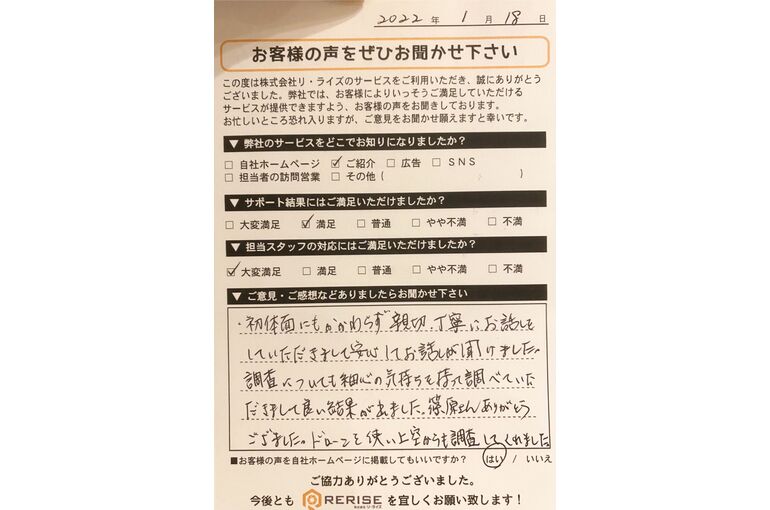 2022 年 1 月 18 日
お客様の声をぜひお聞かせ下さい
この度は株式会社リ・ライズのサービスをご利用いただき、誠にありがとう
ございました。弊社では、お客様によりいっそうご満足していただける
サービスが提供できますよう、お客様の声をお聞きしております。
お忙しいところ恐れ入りますが、ご意見をお聞かせ願えますと幸いです。
▼ 弊社のサービスをどこでお知りになりましたか?
□ 自社ホームページ ☑ ご紹介 □ 広告 □ SNS
□ 担当者の訪問営業 □ その他 ( )
▼ サポート結果にはご満足いただけましたか?
□ 大変満足 ☑ 満足 □ 普通 □ やや不満 □ 不満
▼ 担当スタッフの対応にはご満足いただけましたか?
☑ 大変満足 □ 満足 □ 普通 □ やや不満 □ 不満
▼ ご意見・ご感想などありましたらお聞かせ下さい
・初体面にもかかわらず親切、丁寧にお話しを
していただきまして安心してお話しが聞けました。
調査についても細心の気持ちを持って調べていた
だきまして良い結果が出ました。篠原さんありがとう
ございました。ドローンを使い上空からも調査してくれました
■お客様の声を自社ホームページに掲載してもいいですか? はい / いいえ
ご協力ありがとうございました。
今後とも RERISE 株式会社 リ・ライズ を宜しくお願い致します!